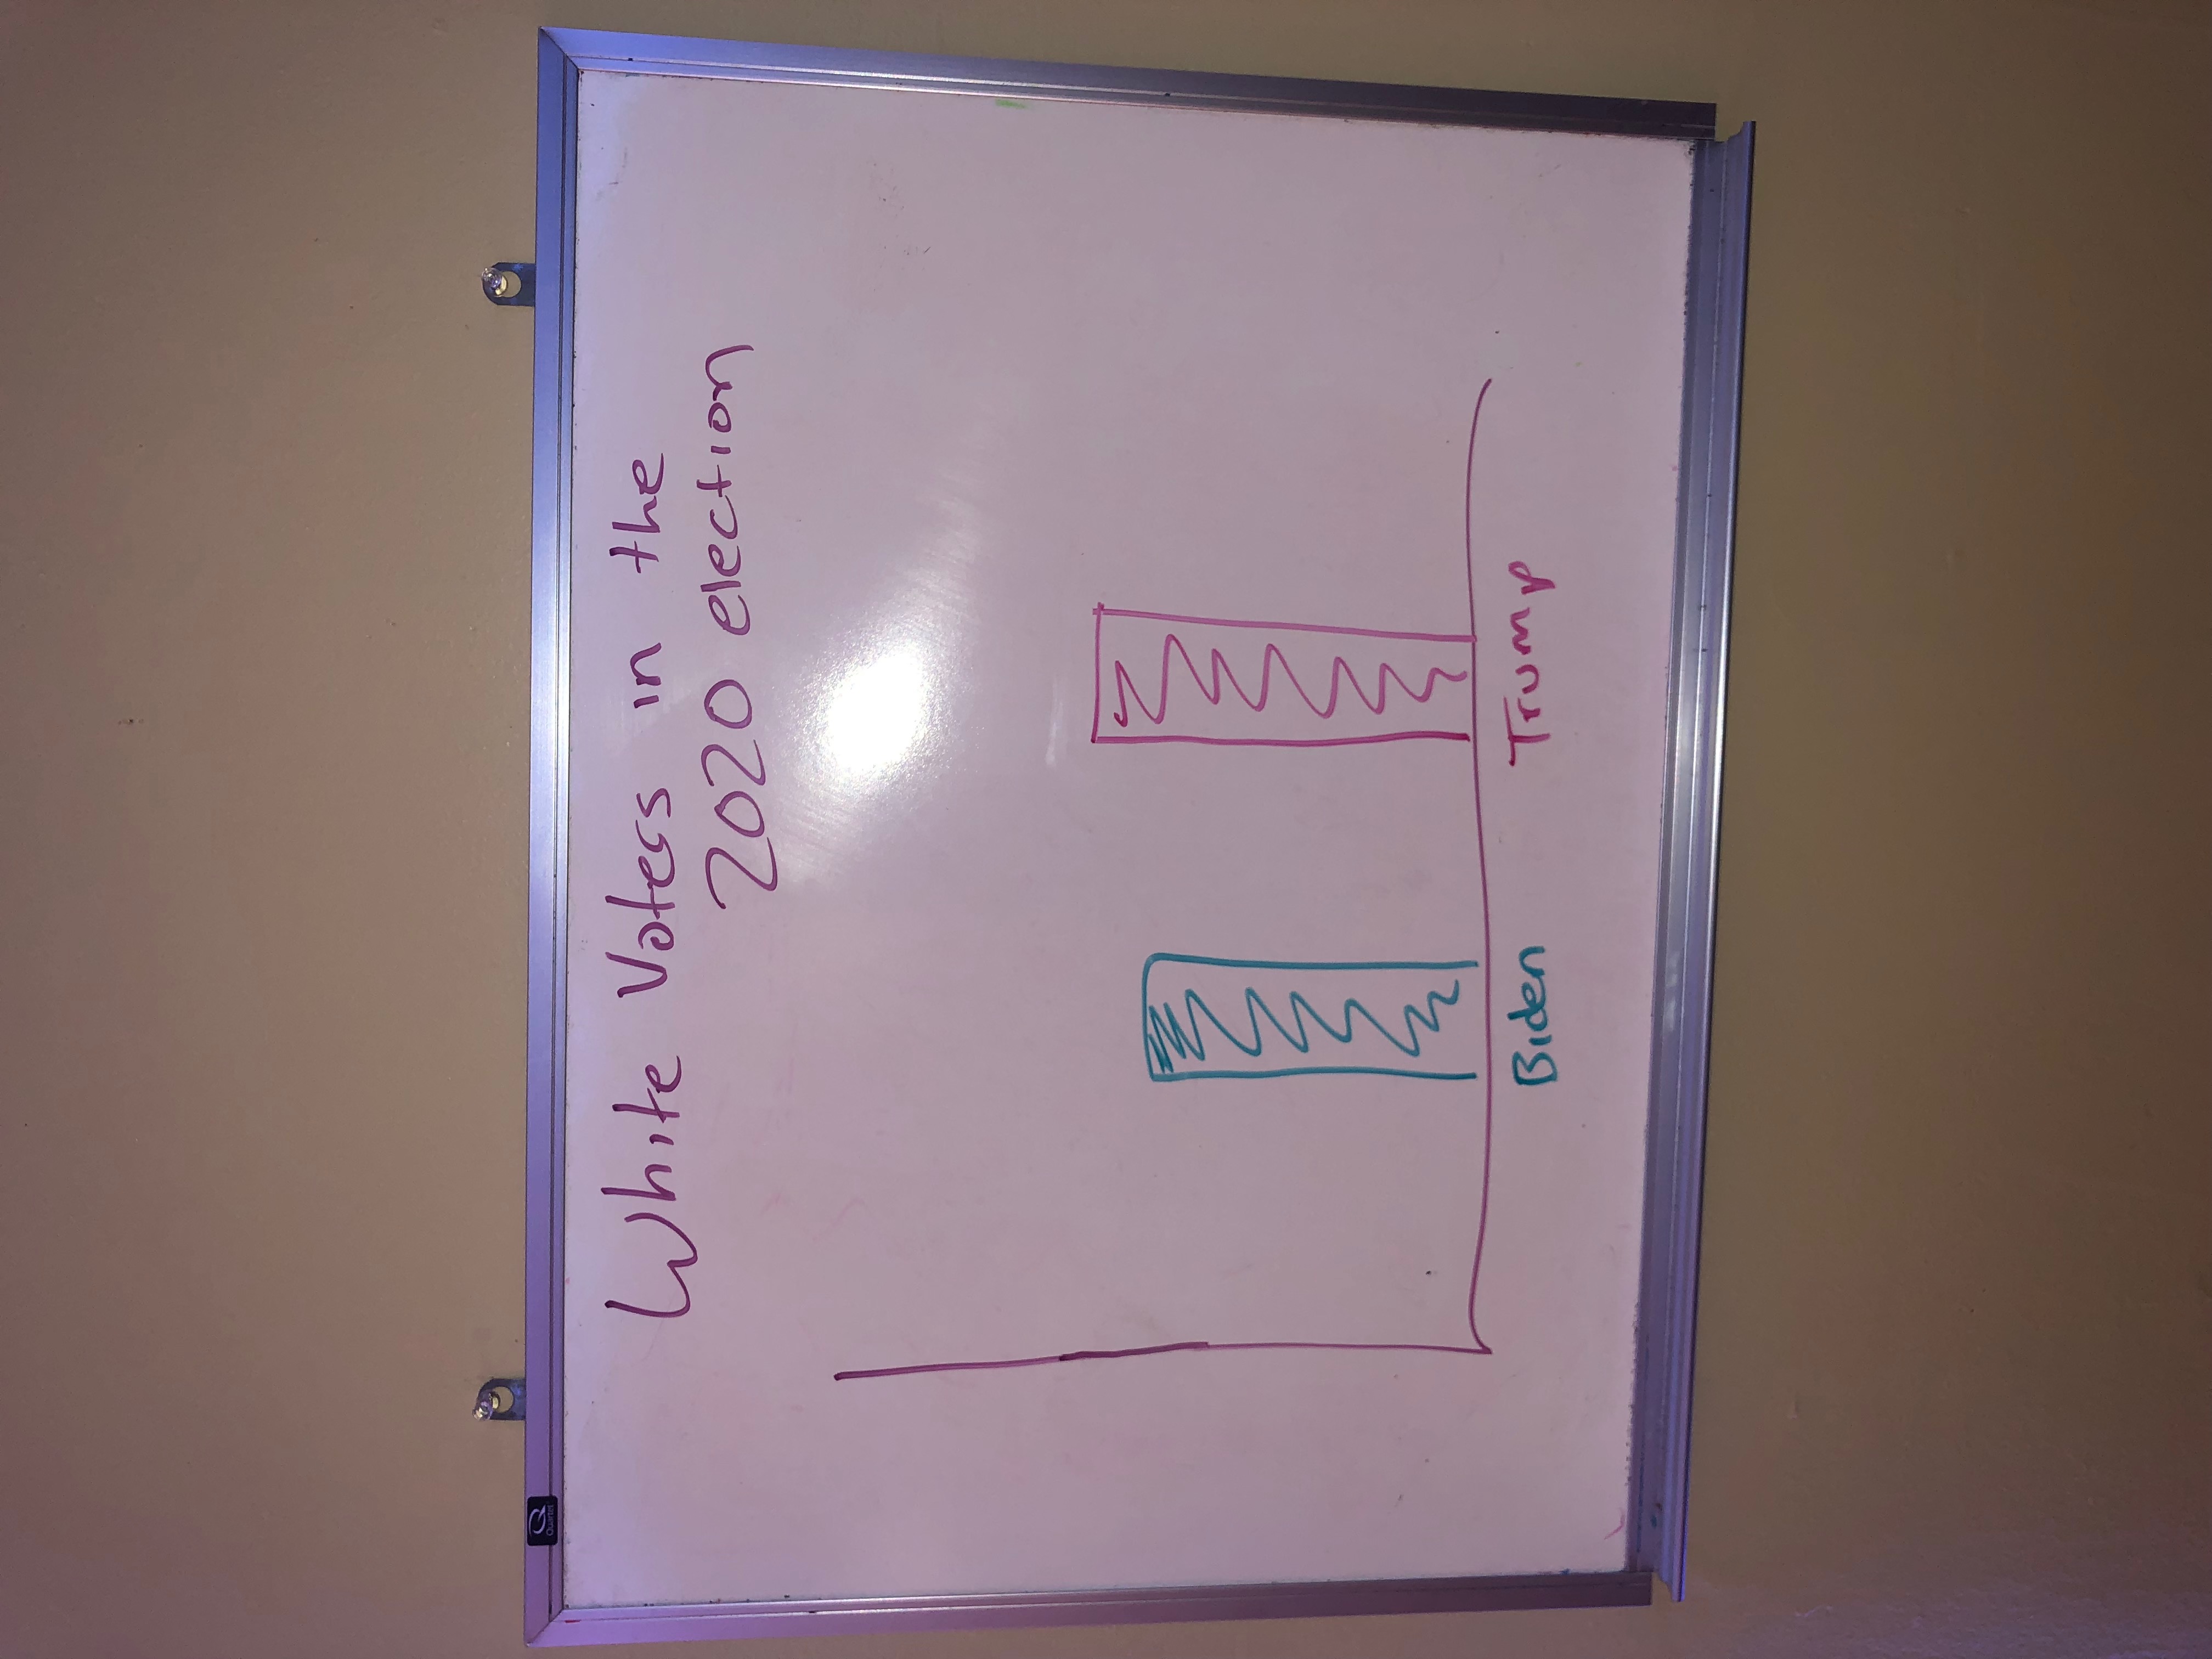 Quartet
White Voters in the
2020 election
Biden Trump